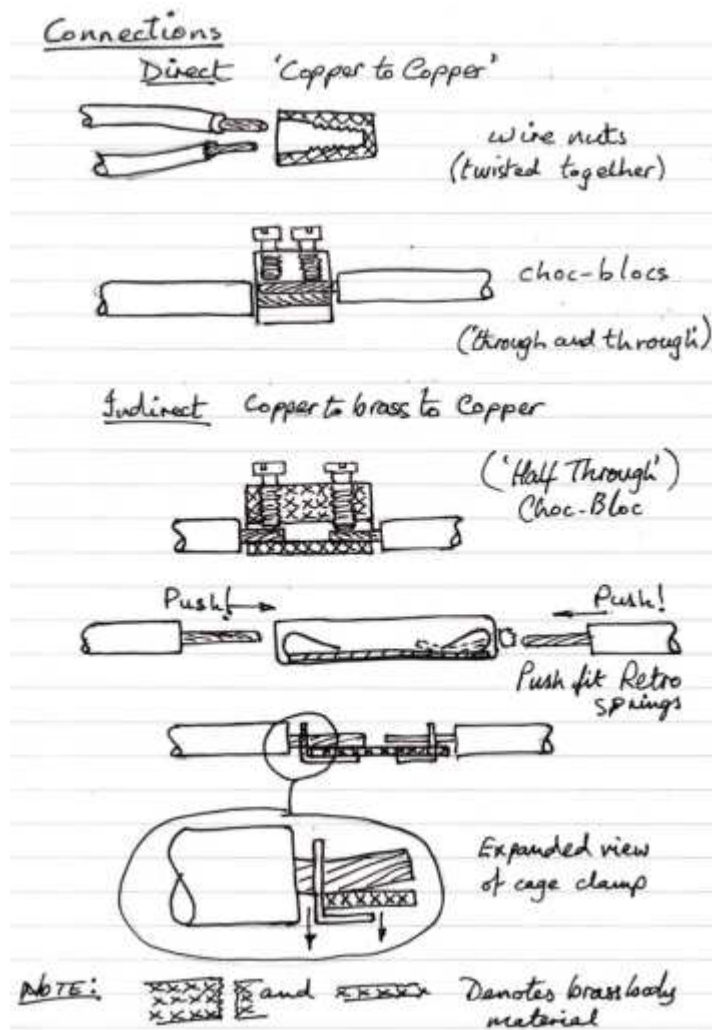 Connections
Direct 'Copper to Copper'
wire nuts
(twisted together)
choc-blocs
('through and through')
Indirect Copper to brass to Copper
('Half Through')
Choc-Bloc
Push!
Push!
Push fit Retro
springs
Expanded view
of cage clamp
NOTE: and Denotes brass body
material